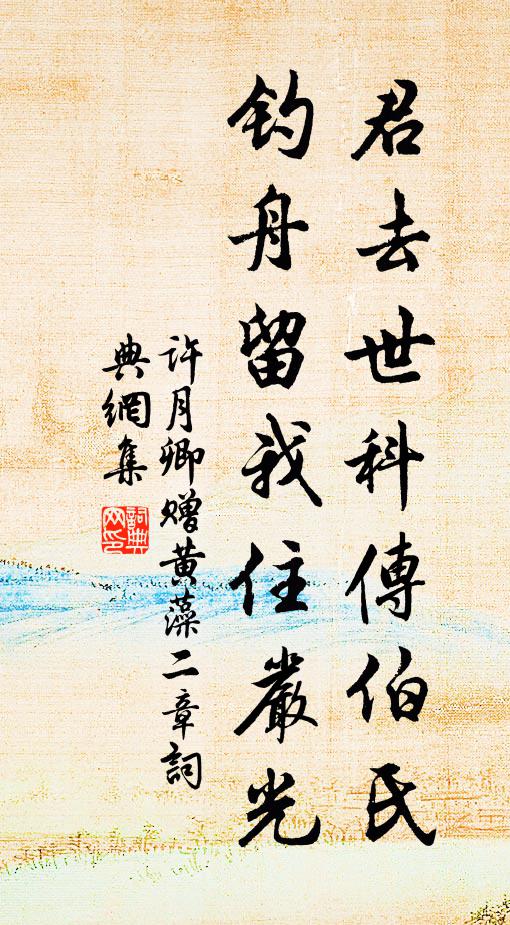 君去世科傳伯氏
钓舟留我住嚴光
许月卿赠黄藻二章詞
典網集
詞典
网印